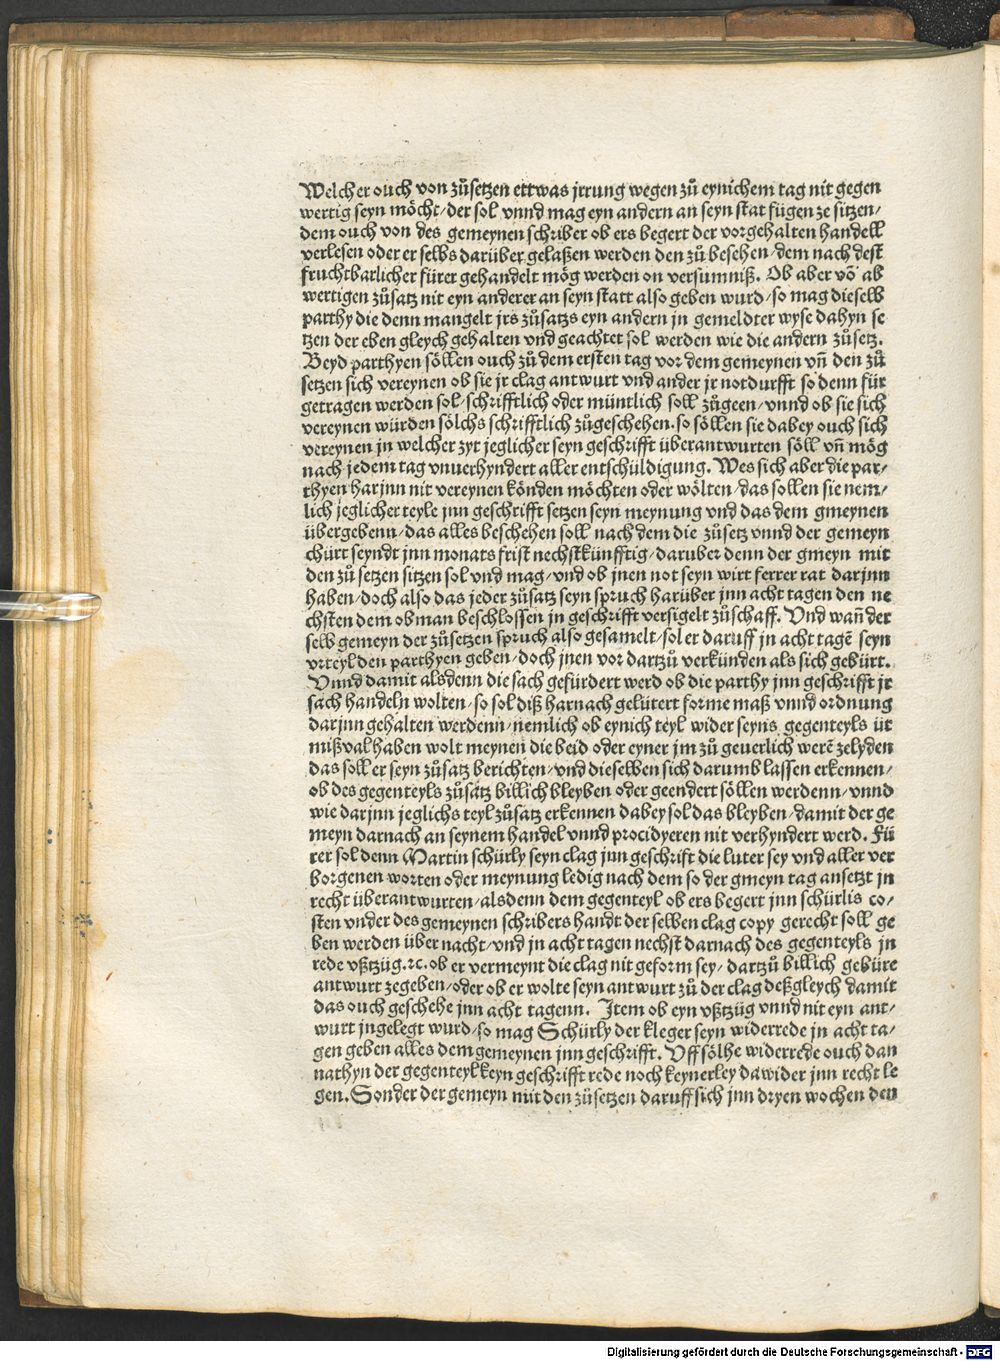 Welcher ouch von zůsetzen ettwas jrrung wegen zů eynichem tag nit gegen
wertig seyn möcht/der sol vnnd mag eyn andern an seyn stat fügen ze sitzen/
dem ouch von des gemeynen schriber ob ers begert der vorgehalten handell
verlesen oder er selbs darüber gelaßen werden den zů besehen/dem nach dest
fruchtbarlicher fürer gehandelt mög werden on versumniß. Ob aber võ ab
wertigen zůsatz nit eyn anderer an seyn statt also geben wurd/so mag dieselb
parthy die denn mangelt jrs zůsatzs eyn andern jn gemeldter wyse dahyn se
tzen der eben gleych gehalten vnd geachtet sol werden wie die andern zůsetz.
Beyd parthyen söllen ouch zů dem ersten tag vor dem gemeynen vñ den zů
setzen sich vereynen ob sie jr clag antwurt vnd ander jr notdurfft so denn für
getragen werden sol/schrifftlich oder müntlich soll zůgeen/vnnd ob sie sich
vereynen würden sölchs schrifftlich zůgeschehen. so söllen sie dabey ouch sich
vereynen jn welcher zyt jeglicher seyn geschrifft überantwurten söll vñ mög
nach jedem tag vnuerhyndert aller entschüldigung. Wes sich aber die par/
thyen harjnn nit vereynen könden möchten oder wölten/das sollen sie nem/
lich jeglicher teyle jnn geschrifft setzen seyn meynung vnd das dem gmeynen
übergebenn/das alles beschehen soll nach dem die zůsetz vnnd der gemeyn
chürt seyndt jnn monats frist nechstkünfftig/daruber denn der gmeyn mit
den zů setzen sitzen sol vnd mag/vnd ob jnen not seyn wirt ferrer rat darjnn
haben/doch also das jeder zůsatz seyn spruch harüber jnn acht tagen den ne
chsten dem ob man beschlossen jn geschrifft versigelt zůschaff. Vnd wañ der
selb gemeyn der zůsetzen spruch also gesamelt/sol er daruff jn acht tagẽ seyn
vrteyl den parthyen geben/doch jnen vor dartzů verkünden als sich gebürt.
Vnnd damit alsdenn die sach gefürdert werd ob die parthy jnn geschrifft jr
sach handeln wolten/so sol diß harnach gelütert forme maß vnnd ordnung
darjnn gehalten werdenn/nemlich ob eynich teyl wider seyns gegenteyls üt
mißval haben wolt meynen die beid oder eyner jm zů geuerlich werẽ zelyden
das soll er seyn zůsatz berichten/vnd dieselben sich darumb lassen erkennen/
ob des gegenteyls zůsätz billich bleyben oder geendert söllen werdenn/vnnd
wie darjnn jeglichs teyl zůsatz erkennen dabey sol das bleyben/damit der ge
meyn darnach an seynem handel vnnd procidyeren nit verhyndert werd. Fü
rer sol denn Martin schürly seyn clag jnn geschrift die luter sey vnd aller ver
borgenen worten oder meynung ledig nach dem so der gmeyn tag ansetzt jn
recht überantwurten/alsdenn dem gegenteyl ob ers begert jnn schürlis co/
sten vnder des gemeynen schribers handt der selben clag copy gerecht soll ge
ben werden über nacht/vnd jn acht tagen nechst darnach des gegenteyls jn
rede vßtzüg.ꝛc. ob er vermeynt die clag nit geform sey/dartzů billich gebüre
antwurt zegeben/oder ob er wolte seyn antwurt zů der clag deßgleych damit
das ouch geschehe jnn acht tagenn. Item ob eyn vßtzüg vnnd nit eyn ant/
wurt jngelegt wurd/so mag Schürly der kleger seyn widerrede jn acht ta/
gen geben alles dem gemeynen jnn geschrifft. Vff sölhe widerrede ouch dan
nathyn der gegenteyl keyn geschrifft rede noch keynerley dawider jnn recht le
gen. Sonder der gemeyn mit den zůsetzen daruff sich jnn dryen wochen den
Digitalisierung gefördert durch die Deutsche Forschungsgemeinschaft - DFG